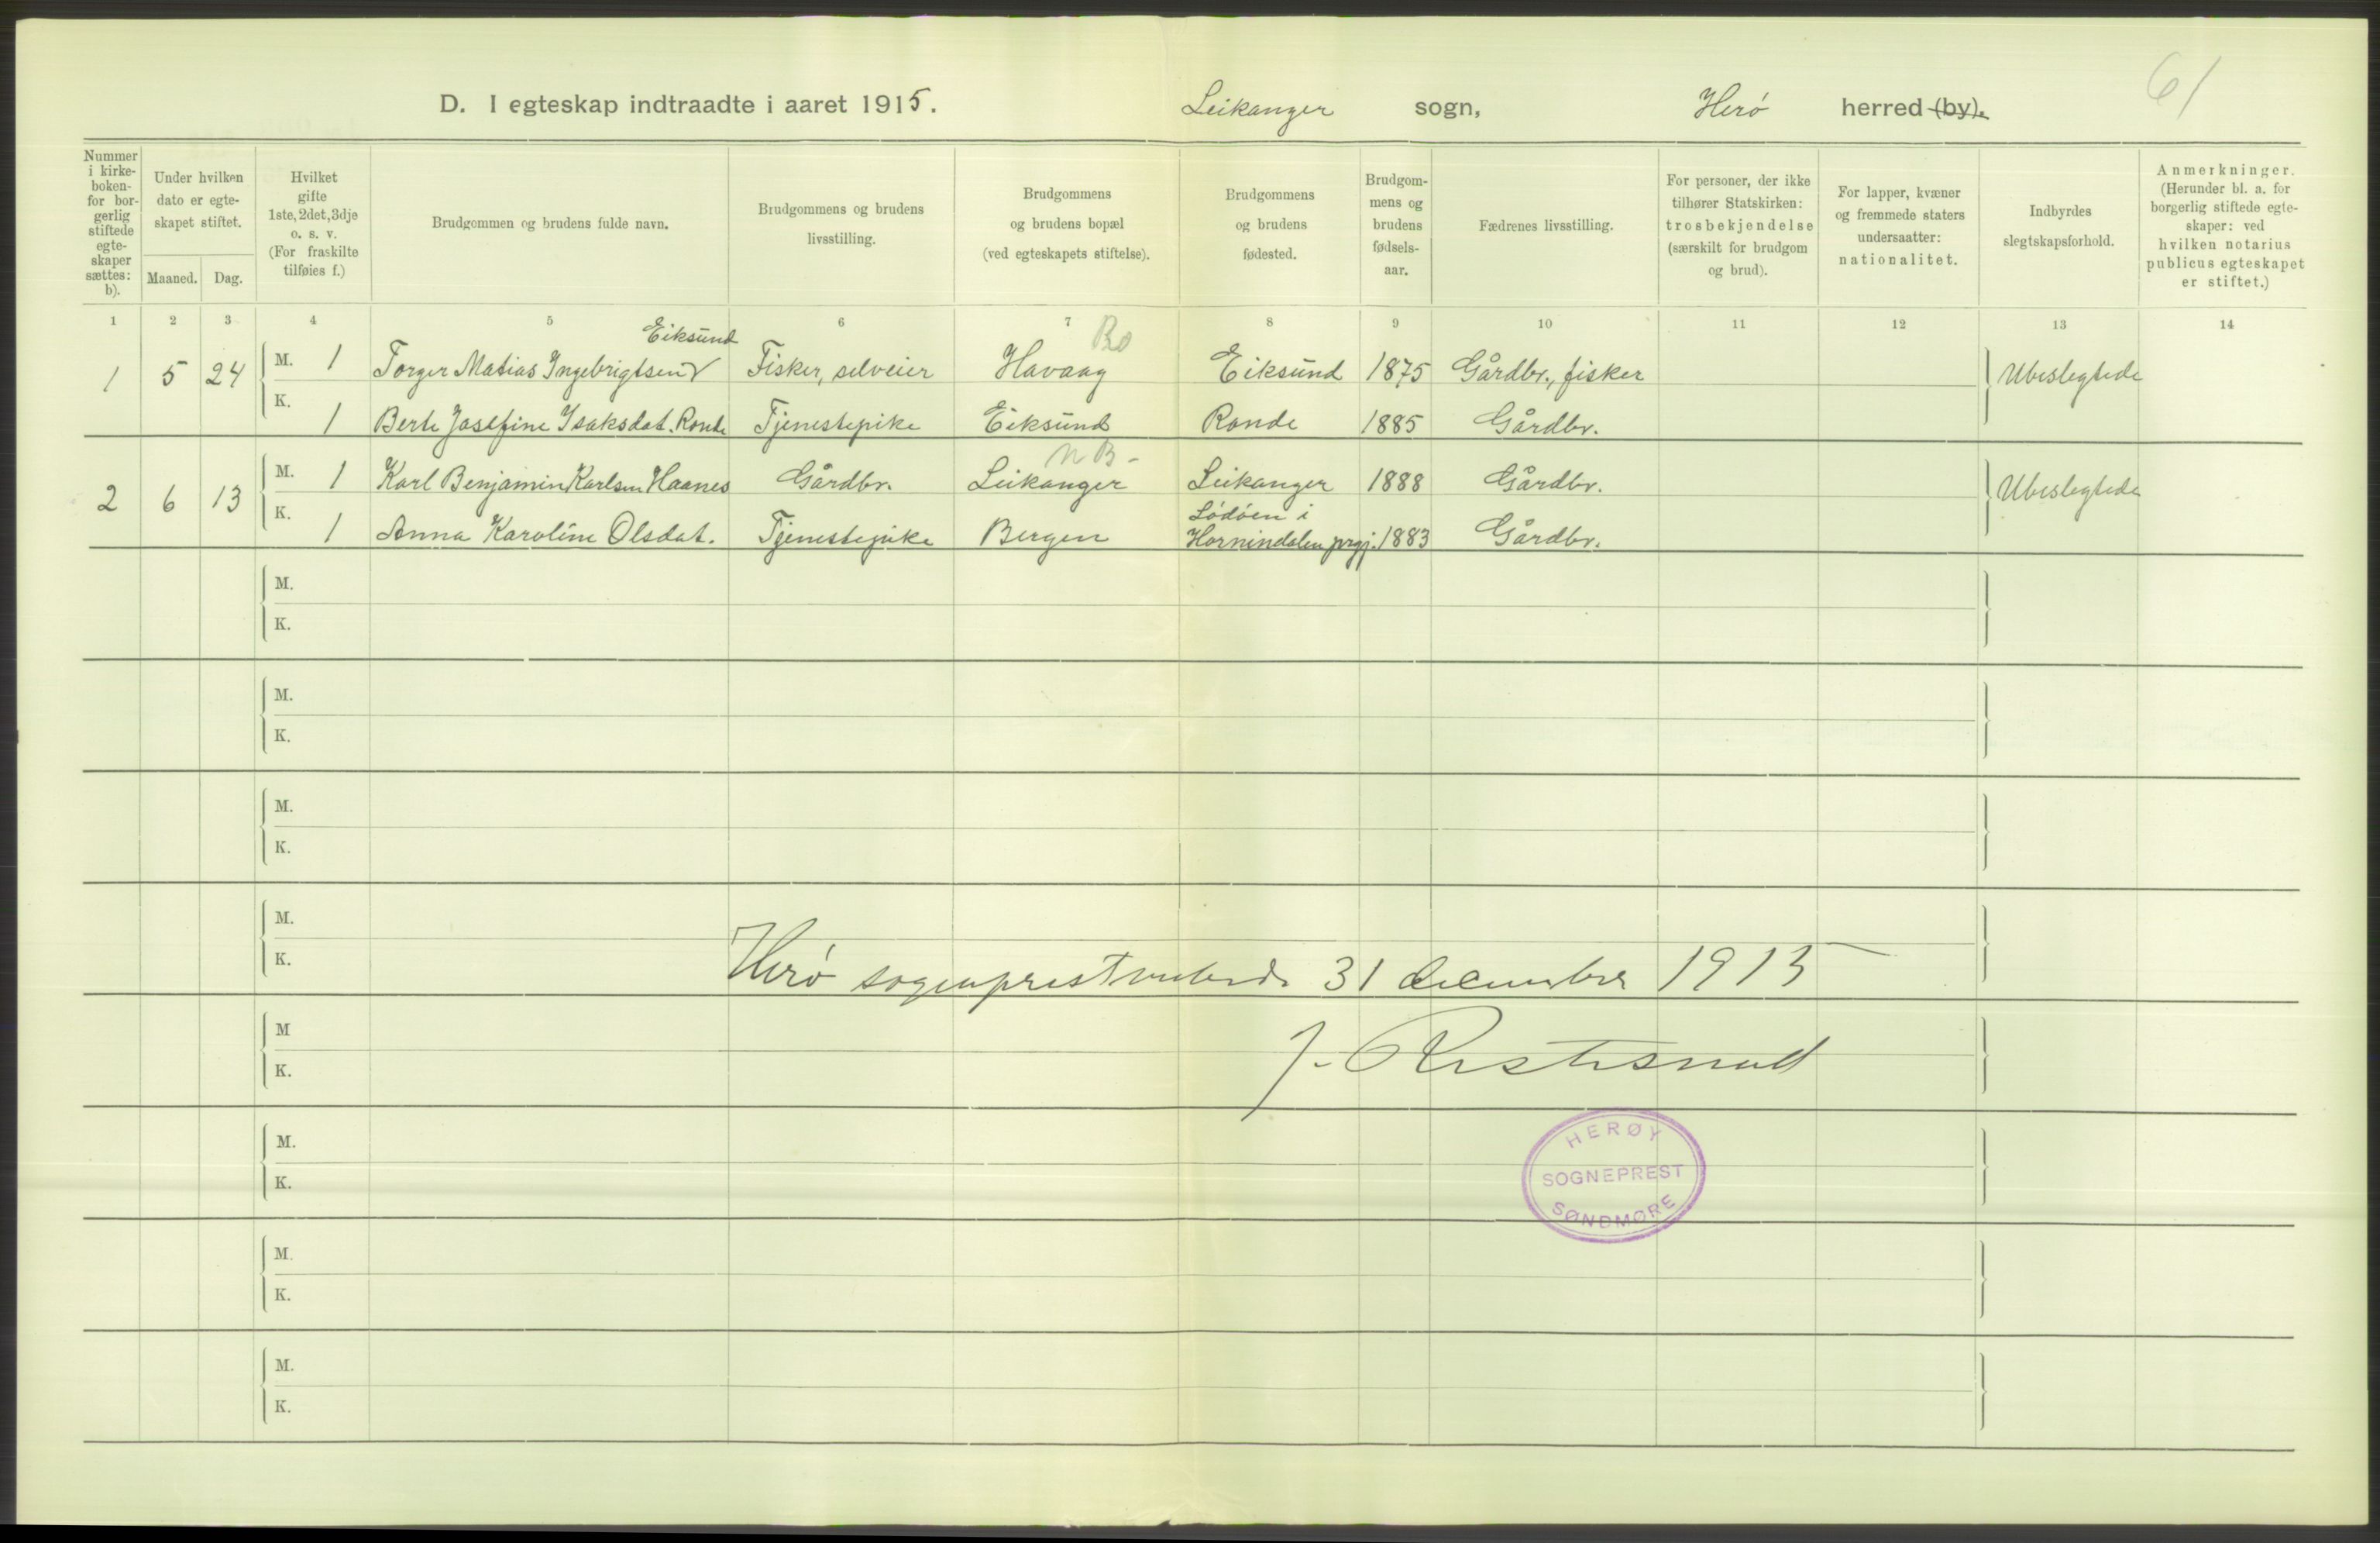 61
D. I egteskap indtraadte i aaret 1915. Leikanger sogn, Herö herred (by).
Nummer i kirke-boken- for bor-gerlig stiftede egte-skaper sættes: b).
Under hvilken dato er egte-skapet stiftet.
Maaned. Dag.
Hvilket gifte 1ste, 2det, 3dje o. s. v. (For fraskilte tilføies f.)
Brudgommen og brudens fulde navn.
Brudgommens og brudens livsstilling.
Brudgommens og brudens bopæl (ved egteskapets stiftelse).
Brudgommens og brudens fødested.
Brudgom-mens og brudens fødsels-aar.
Fædrenes livsstilling.
For personer, der ikke tilhører Statskirken: trosbekjendelse (særskilt for brudgom og brud).
For lapper, kvæner og fremmede staters undersaatter: nationalitet.
Indbyrdes slegtskapsforhold.
Anmerkninger. (Herunder bl. a. for borgerlig stiftede egte-skaper: ved hvilken notarius publicus egteskapet er stiftet.)
1 2 3 4 5 6 7 8 9 10 11 12 13 14
Eiksund Bo
1 5 24 M. 1 Torger Matias Ingebrigtsen Fisker, selveier Havaag Eiksund 1875 Gårdbr., fisker Ubeslegtede
K. 1 Berte Josefine Isaksdat. Ronde Tjenestepike Eiksund Ronde 1885 Gårdbr.
NB-
2 6 13 M. 1 Karl Benjamin Karlsen Haanes Gårdbr. Leikanger Leikanger 1888 Gårdbr. Ubeslegtede
Lödöen i
K. 1 Anna Karoline Olsdat. Tjenestepike Bergen Hornindalen prgj. 1883 Gårdbr.
M.
K.
M.
K.
M.
K.
M.
K.
Herö 31 december 1915
M
K.
J.
M.
K.
HERØY
SOGNEPREST
SØNDMØRE
M.
K.
M.
K.